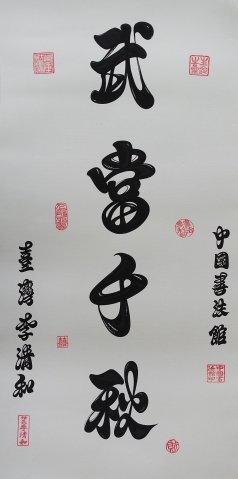 武當千秋
中國書法館
臺灣李清和